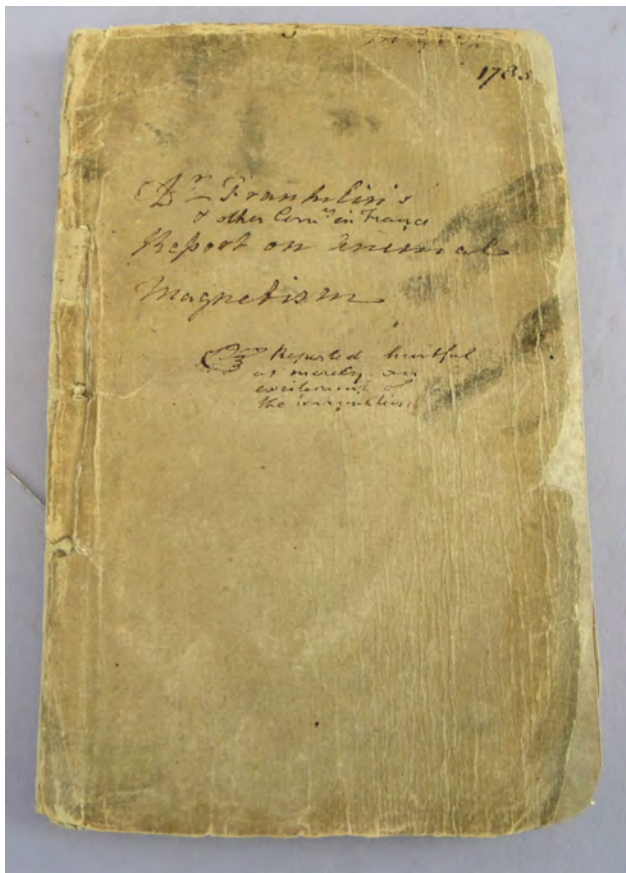 1785
Dr Franklin's
& other Comrs in France
Report on Animal
Magnetism
Reported hurtful
as merely an
excitement of
the imagination